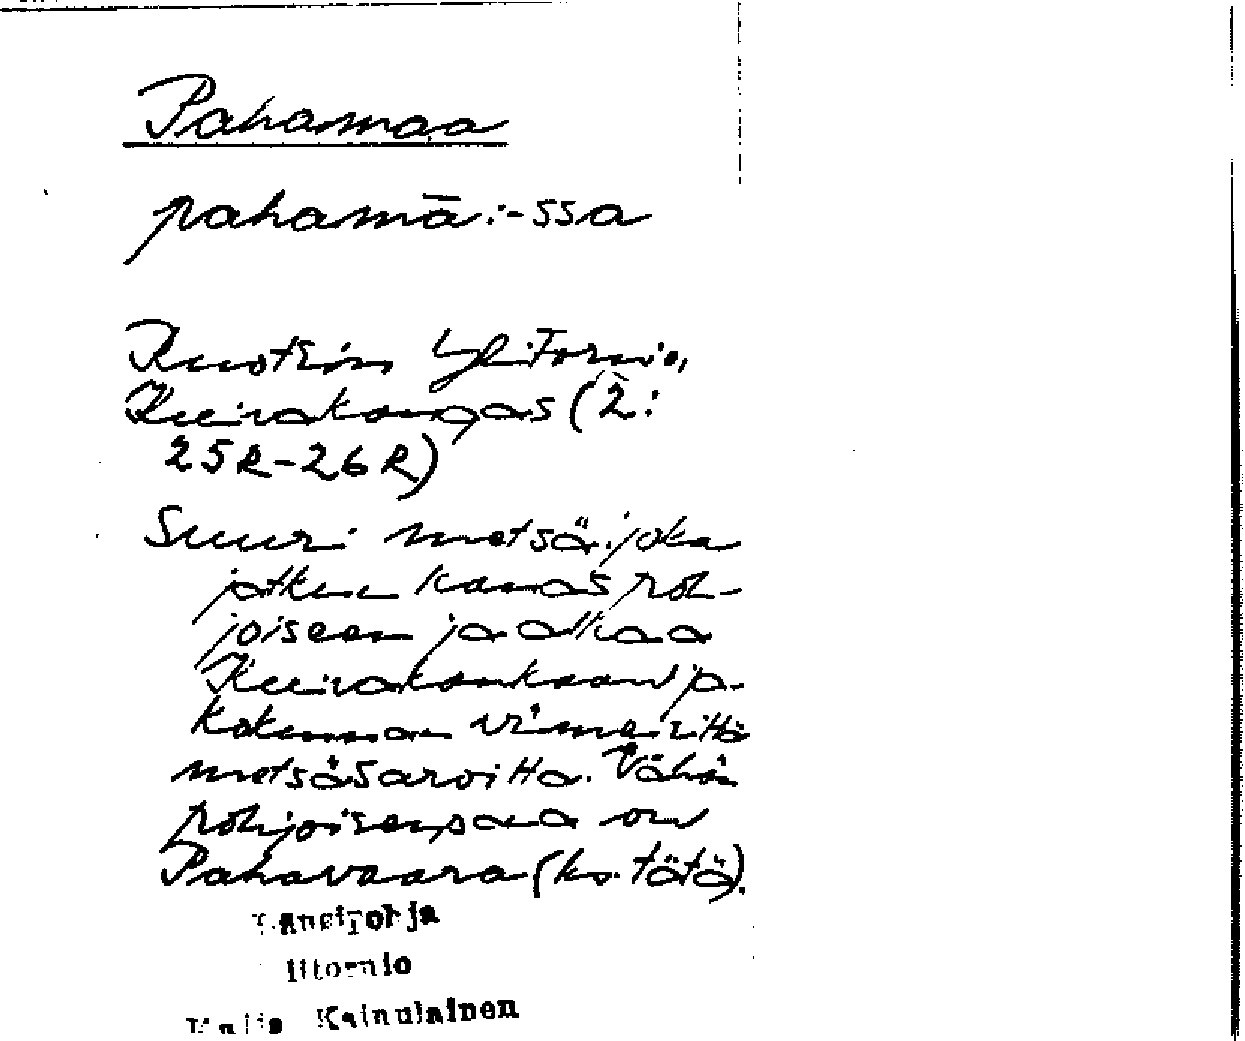 Pahamaa
pahamā:-ssa
Ruotsin Ylitornio,
Kuivakangas (2:
25R-26R)
Suuri metsä, joka
jatkuu kauas poh-
joiseen ja alkaa
Kuivakankaan jo-
kokunnan viimeisiltä
metsäsaroilta. Vähän
pohjoisempana on
Pahavaara (ks. tätä).
Länsipohja
litornio
Maija Kainulainen